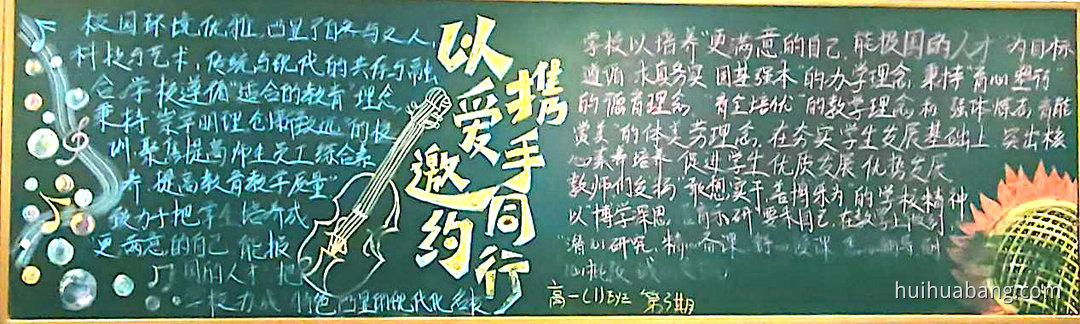 校园环境优雅,凸显了自然与人文,
科技与艺术,传统与现代的共存与融
合。学校遵循"适合的教育"理念,
秉持"崇平明理 创新致远"的校
训,聚焦提高师生员工综合素
养,提高教育教学质量"
致力于把学生培养成
"更满意的自己 能报
国的人才"把
一校办成 特色凸显的现代化
以爱邀约
携手同行
学校以培养"更满意的自己,能报国的人才"为目标
遵循"求真务实 固基强本"的办学理念,秉持
的德育理念,"育全培优"的教学理念,和"强体炼志,育能
赏美"的体美劳理念,在夯实学生发展基础上,突出核
心素养培养,促进学生优质发展 优势发展
教师们发扬"敢想实干 善拼乐为"的学校精神
以"博学深思 研"要求自己,在教学上做到
"潜心研究,精 备课 授课
高一(1)班 第3期
huihuabang.com